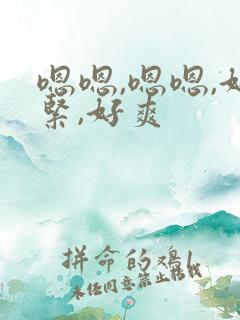 嗯嗯,嗯嗯,好
紧,好爽
拼命的鸡
未经同意禁止转载